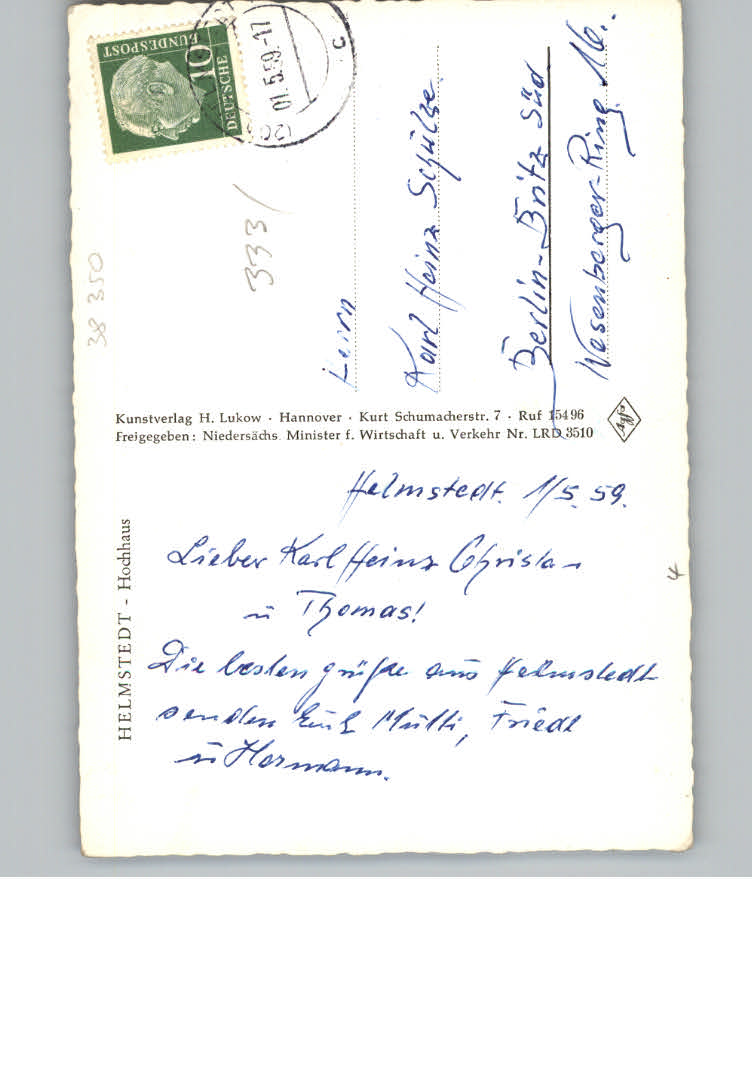 DEUTSCHE
BUNDESPOST
10
01.5.59-17
c
333/
38 350
Herrn
Karl Heinz Schulze
Berlin-Britz Süd
Wesenberger-Ring 16.
Kunstverlag H. Lukow · Hannover · Kurt Schumacherstr. 7 · Ruf 15496
Freigegeben: Niedersächs. Minister f. Wirtschaft u. Verkehr Nr. LRD 3510
Agfa
HELMSTEDT - Hochhaus
Helmstedt. 1/5. 59.
Lieber Karl Heinz Christa -
u Thomas!
Die besten Grüße aus Helmstedt
senden Euch Mutti, Friedl
u Hermann.
4